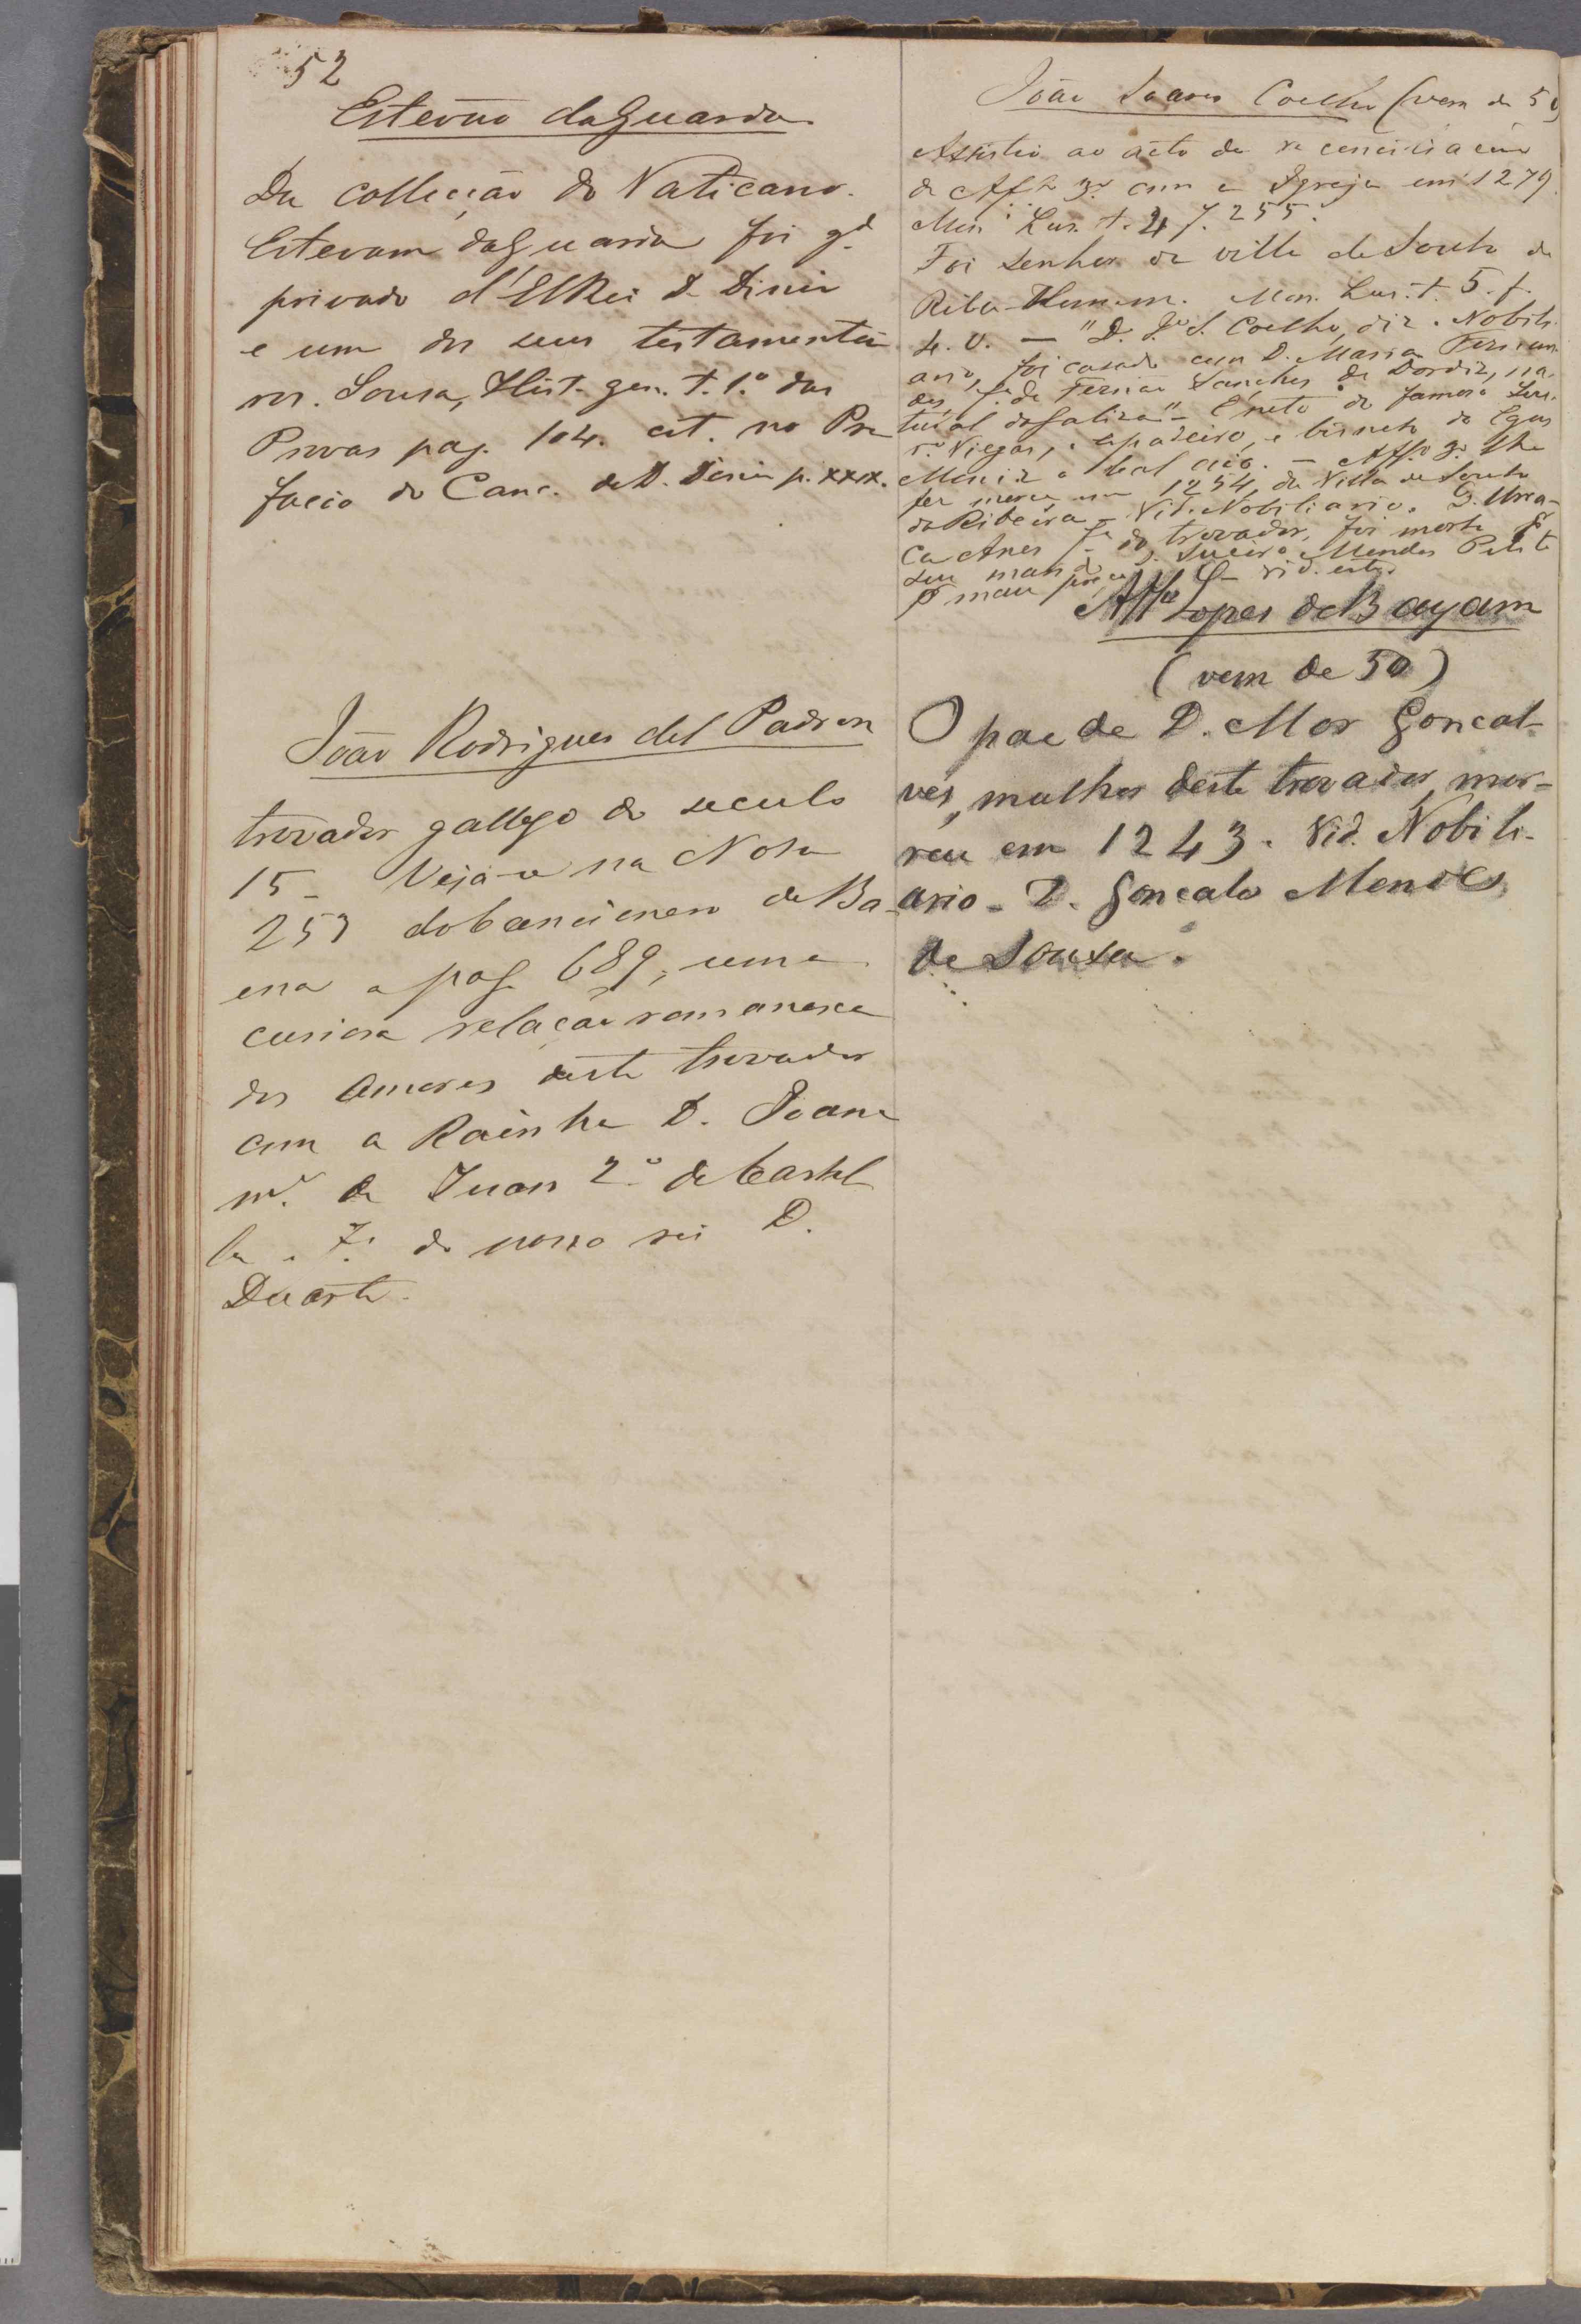 52
Estevão da Guarda.
Da collecção do Vaticano.
Estevam da Guarda foi gd.
privado d'ElRei D. Diniz
e um dos seus testamentei-
ros. Sousa, Hist. gen. t. 1.º das
Provas pag. 104. cit. no Pre
facio do Canc. de D. Diniz p. xxix.
João Rodrigues del Padron
trovador gallego do seculo
15 - Veja-se na Nota
253 do Cancionero de Ba-
ena a pag. 689, uma
curiosa relação romanesca
dos amores deste trovador
com a Rainha D. Joana
mr. de Juan 2.º de Castel
la e f.ª do nosso rei D.
Duarte.
João Soares Coelho (vem de 50)
Assistio ao acto de reconciliação
de Aff.º 3.º com a Igreja em 1279.
Mon. Lus. t. 4 f. 255.
Foi senhor da villa de Souto de
Riba-Homem. Mon. Lus. t. 5. f.
4. v. — "D. J.º S. Coelho, diz o Nobili-
ario, foi casado com D. Maria Fernan-
des f.ª de Fernão Sanches de Dordiz, na-
tural da Galiza" - E neto do famoso Lou-
r.ço Viegas, o espadeiro, e bisneto de Egas
Moniz o leal aio. — Aff.º 3.º lhe
fez mercê em 1254, da Villa de Souto
da Ribeira - Vid. Nobiliario. D. Urra-
ca Anes f.ª do trovador, foi morta p.
seu marido D. Sueiro Mendes Petite
p. mau preço - vid. este.
Aff.º Lopes de Bayam
(vem de 50)
O pae de D. Mor Goncal-
ves, mulher deste trovador, mor-
reu em 1243. Vid. Nobili-
ario - D. Goncalo Mendes
de Sousa.